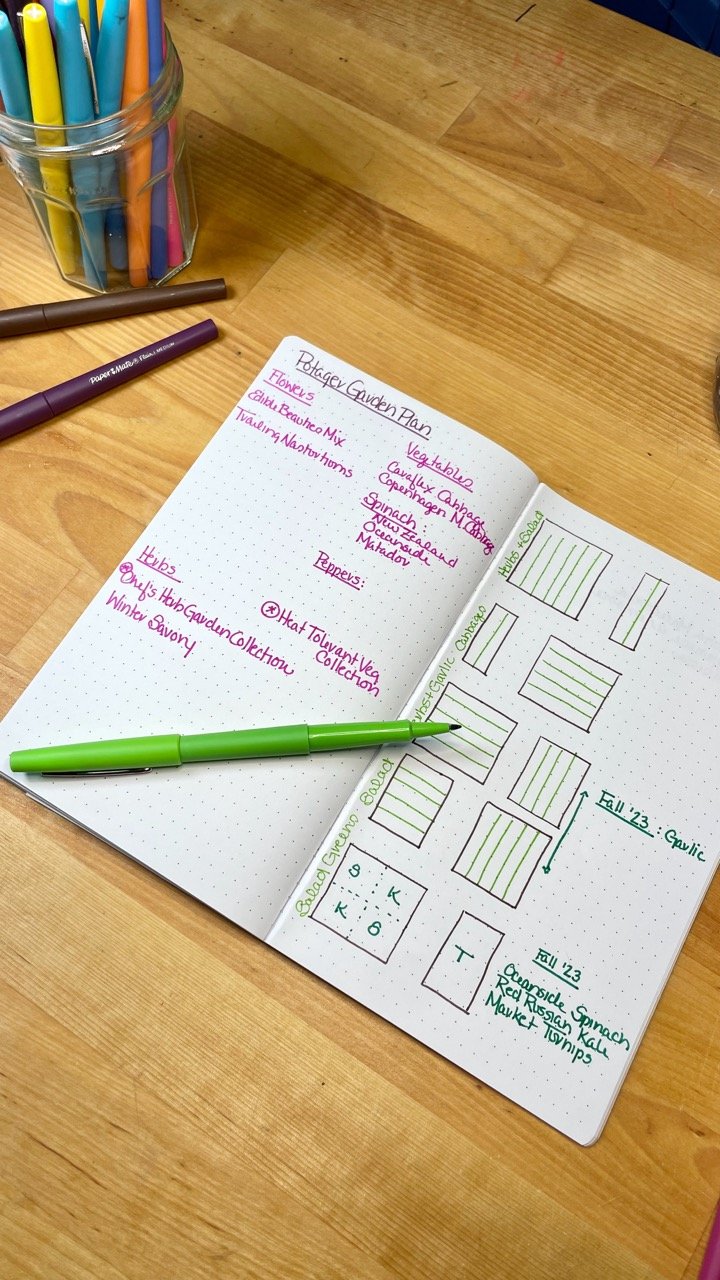 Paper Mate® Flair. MEDIUM
Potager Garden Plan
Flowers
Edible Beauties Mix
Trailing Nasturtiums
Vegetables
Caraflex Cabbage
Copenhagen M. Cabbage
Spinach:
New Zealand
Oceanside
Matador
Peppers:
Herbs
Chef's Herb Garden Collection
Winter Savory
Heat Tolerant Veg
Collection
Herbs + Salad
Cabbages
Herbs + Garlic
Salad
Salad Greens
S K
K S
T
Fall '23 : Garlic
Fall '23
Oceanside Spinach
Red Russian Kale
Market Turnips